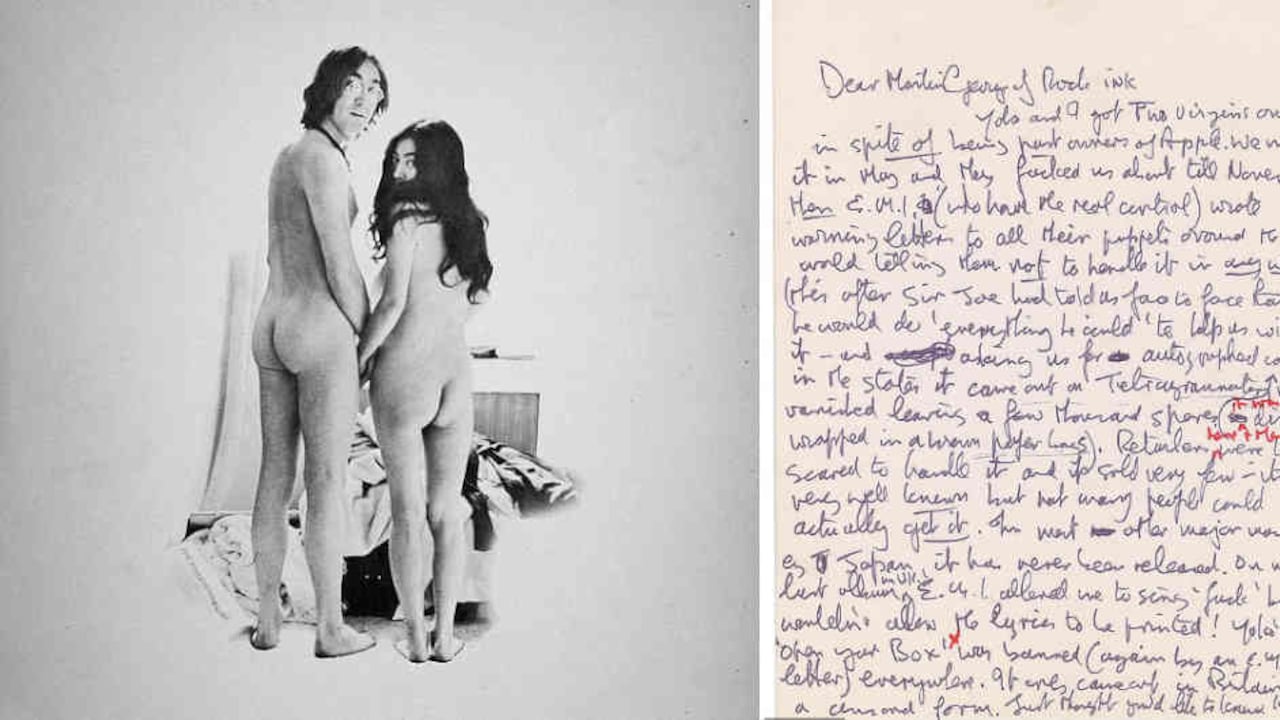 Dear Martin George of Rock ink
Yoko and I got Two Virgins out
in spite of being part owners of Apple. We m
it in May and they fucked us about till Novem
then E.M.I. (who have the real control) wrote
warning letters to all their puppets around the
world telling them not to handle it in any w
(this after Sir Joe had told us face to face that
he would do 'everything he could' to help us wi
it – and asking us for autographed co
in the states it came out on Tetragrammaton
vanished leaving a few thousand spares it was
wrapped in a brown paper bag). Retailers were
scared to handle it and it sold very few – it
very well known but not many people could
actually get it. In most other major
Japan, it has never been released. On
last album, in UK E.M.I. allowed me to sing 'fuck' b
wouldn't allow the lyrics to be printed! Yoko's
'Open your Box' x was banned (again by an E.M.
letter) everywhere. It only came out in Britain
a censored form. Just thought you'd like to know